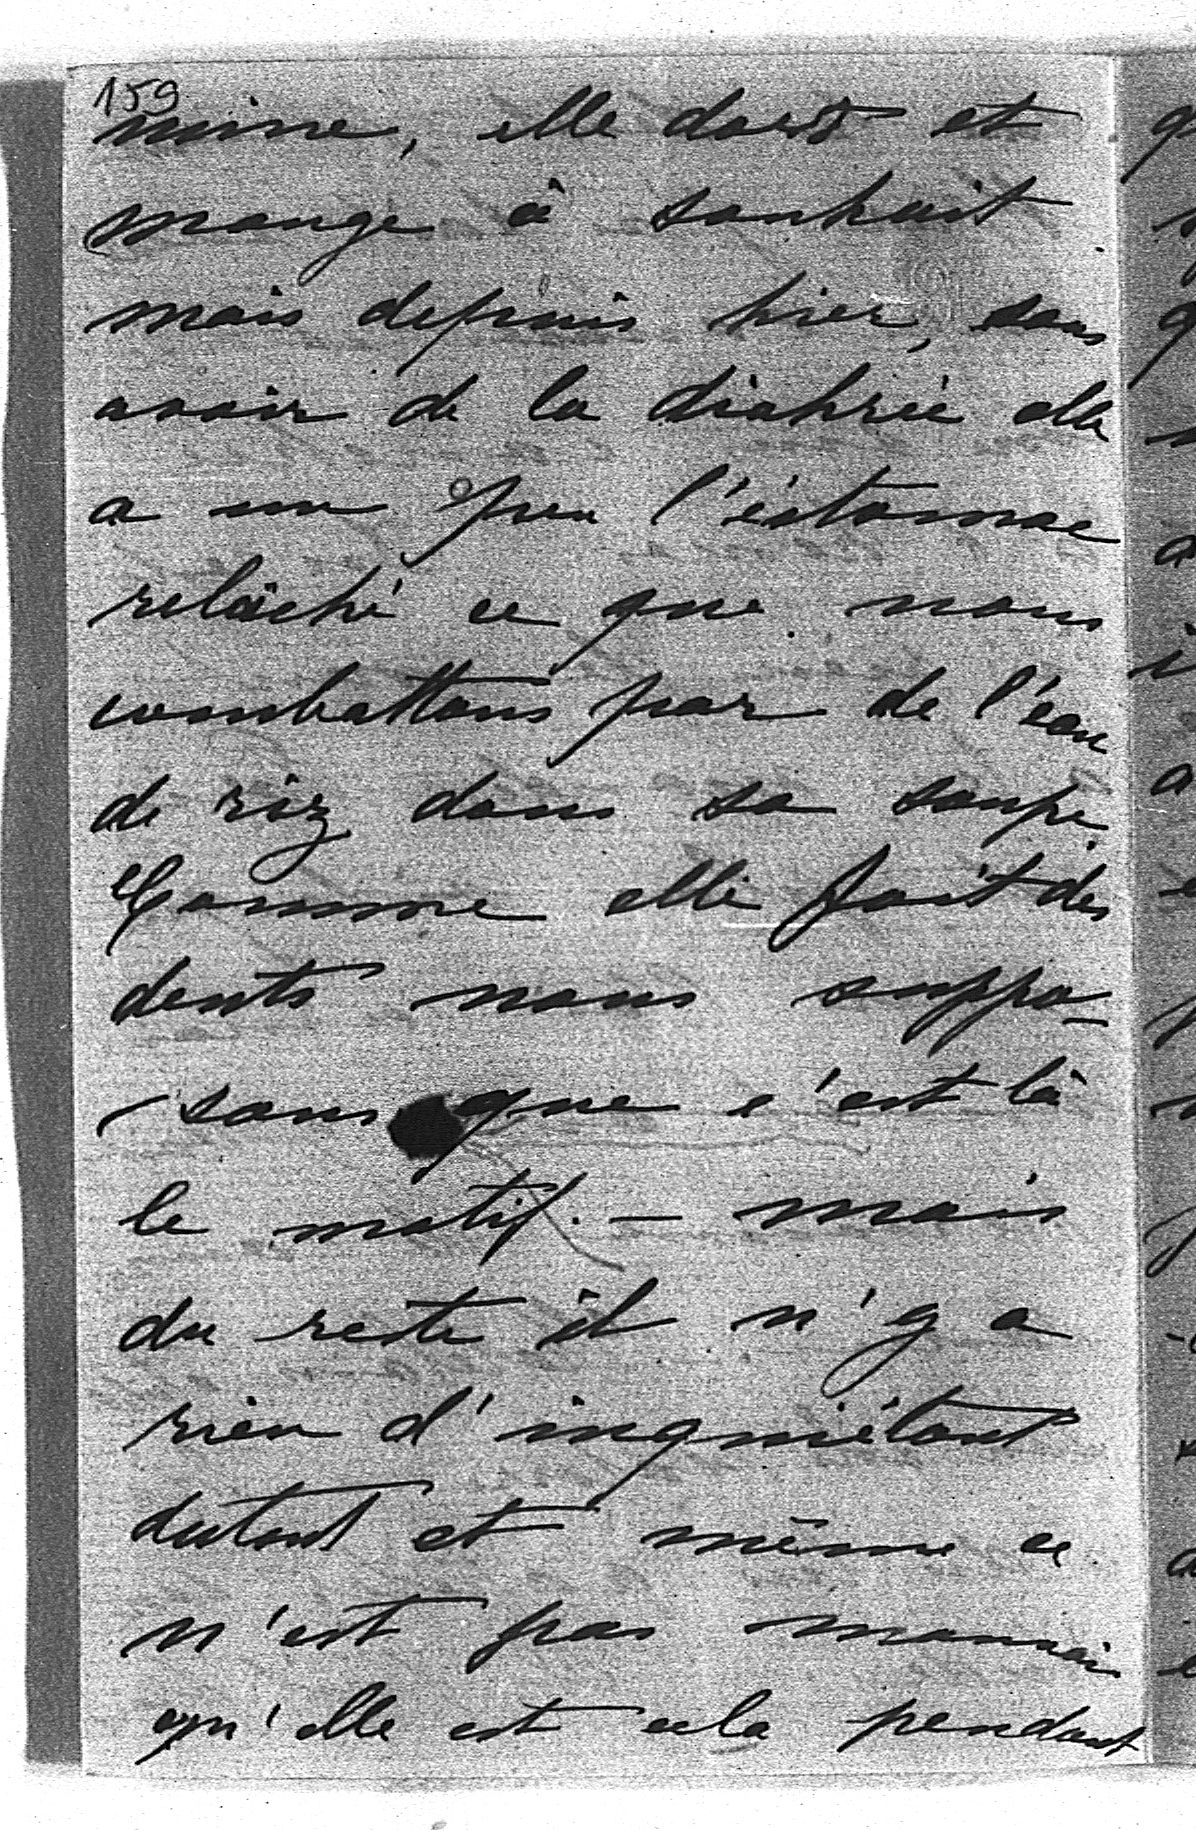 159
mine, elle dort et
mange à souhait
mais depuis hier, sans
avoir de la diahrée elle
a un peu l'estomac
relâché ce que nous
combattons par de l'eau
de riz dans sa soupe.
Comme elle fait des
dents nous suppo-
sons que c'est là
le motif. — mais
du reste il n'y a
rien d'inquiétant
dutout et même ce
n'est pas mauvais
qu'elle est cela pendant